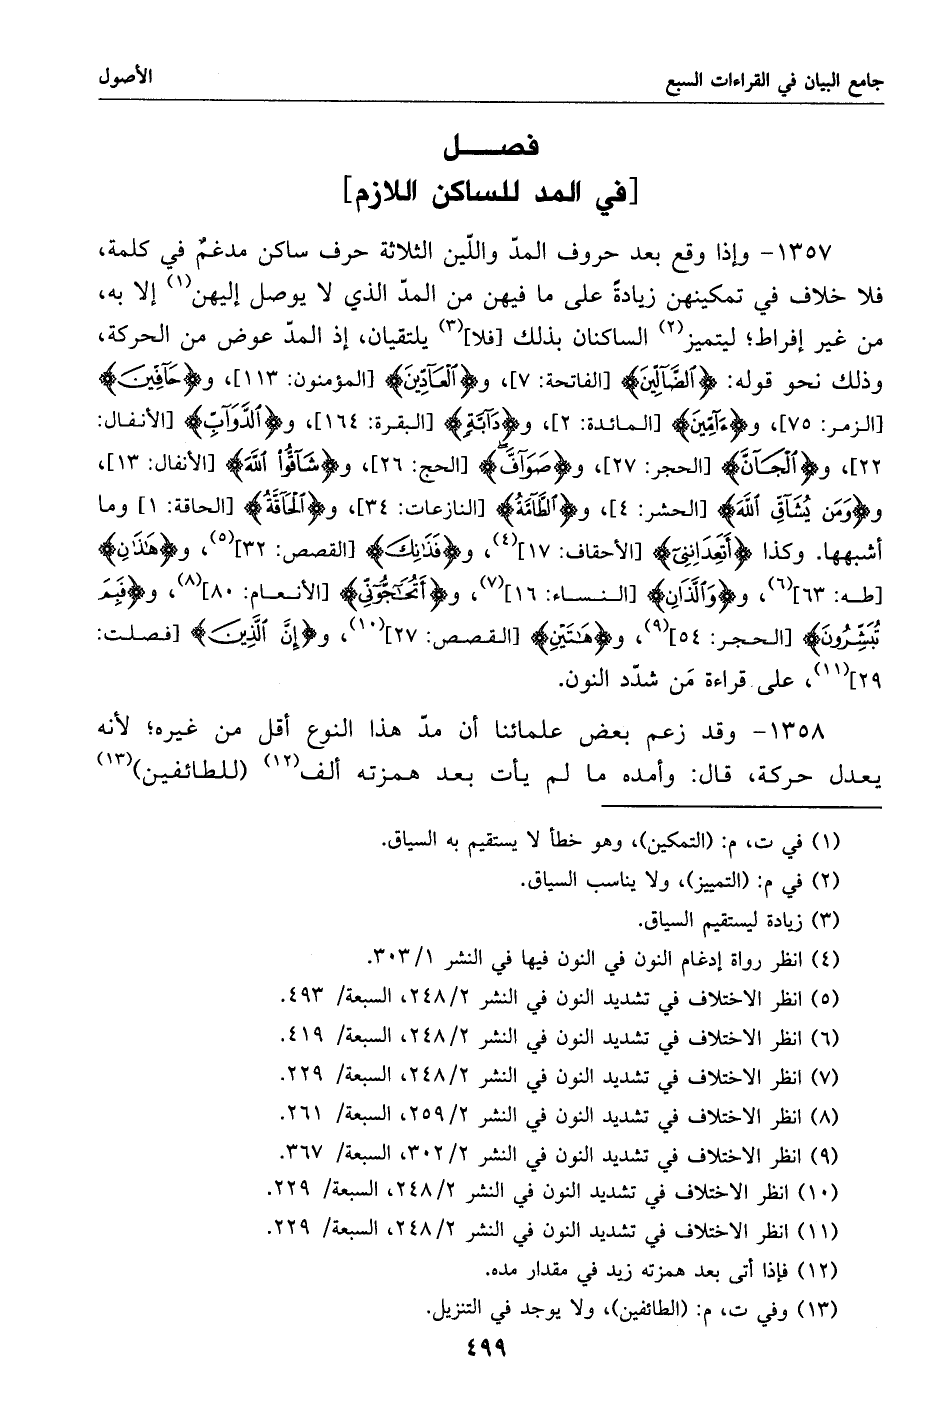 جامع البيان في القراءات السبع
الأصول
فصـــــل
[في المد للساكن اللازم]
١٣٥٧- وإذا وقع بعد حروف المدّ واللّين الثلاثة حرف ساكن مدغمٌ في كلمة،
فلا خلاف في تمكينهن زيادةً على ما فيهن من المدّ الذي لا يوصل إليهن(١) إلا به،
من غير إفراط؛ ليتميز(٢) الساكنان بذلك [فلا](٣) يلتقيان، إذ المدّ عوض من الحركة،
وذلك نحو قوله: ﴿ٱلضَّآلِّينَ﴾ [الفاتحة: ٧]، و﴿ٱلْعَآدِّينَ﴾ [المؤمنون: ١١٣]، و﴿حَآفِّينَ﴾
[الزمر: ٧٥]، و﴿ءَآمِّينَ﴾ [المائدة: ٢]، و﴿دَآبَّةٍ﴾ [البقرة: ١٦٤]، و﴿ٱلدَّوَآبِّ﴾ [الأنفال:
٢٢]، و﴿ٱلْجَآنَّ﴾ [الحجر: ٢٧]، و﴿صَوَآفَّۖ﴾ [الحج: ٢٦]، و﴿شَآقُّوا۟ ٱللَّهَ﴾ [الأنفال: ١٣]،
و﴿وَمَن يُشَآقِّ ٱللَّهَ﴾ [الحشر: ٤]، و﴿ٱلطَّآمَّةُ﴾ [النازعات: ٣٤]، و﴿ٱلْحَآقَّةُ﴾ [الحاقة: ١] وما
أشبهها. وكذا ﴿أَتَعِدَانِنِىٓ﴾ [الأحقاف: ١٧](٤)، و﴿فَذَٰنِكَ﴾ [القصص: ٣٢](٥)، و﴿هَـٰذَٰنِ﴾
[طـه: ٦٣](٦)، و﴿وَٱلَّذَانِ﴾ [النساء: ١٦](٧)، و﴿أَتُحَـٰٓجُّوٓنِّى﴾ [الأنعام: ٨٠](٨)، و﴿فَبِمَ
تُبَشِّرُونَ﴾ [الحجر: ٥٤](٩)، و﴿هَـٰتَيْنِ﴾ [القصص: ٢٧](١٠)، و﴿إِنَّ ٱلَّذِينَ﴾ [فصلت:
٢٩](١١)، على قراءة مَن شدّد النون.
١٣٥٨- وقد زعم بعض علمائنا أن مدّ هذا النوع أقل من غيره؛ لأنه
يعدل حركة، قال: وأمده ما لم يأت بعد همزته ألف(١٢) (للطائفين)(١٣)
(١) في ت، م: (التمكين)، وهو خطأ لا يستقيم به السياق.
(٢) في م: (التمييز)، ولا يناسب السياق.
(٣) زيادة ليستقيم السياق.
(٤) انظر رواة إدغام النون في النون فيها في النشر ٣٠٣/١.
(٥) انظر الاختلاف في تشديد النون في النشر ٢٤٨/٢، السبعة/ ٤٩٣.
(٦) انظر الاختلاف في تشديد النون في النشر ٢٤٨/٢، السبعة/ ٤١٩.
(٧) انظر الاختلاف في تشديد النون في النشر ٢٤٨/٢، السبعة/ ٢٢٩.
(٨) انظر الاختلاف في تشديد النون في النشر ٢٥٩/٢، السبعة/ ٢٦١.
(٩) انظر الاختلاف في تشديد النون في النشر ٣٠٢/٢، السبعة/ ٣٦٧.
(١٠) انظر الاختلاف في تشديد النون في النشر ٢٤٨/٢، السبعة/ ٢٢٩.
(١١) انظر الاختلاف في تشديد النون في النشر ٢٤٨/٢، السبعة/ ٢٢٩.
(١٢) فإذا أتى بعد همزته زيد في مقدار مده.
(١٣) وفي ت، م: (الطائفين)، ولا يوجد في التنزيل.
٤٩٩